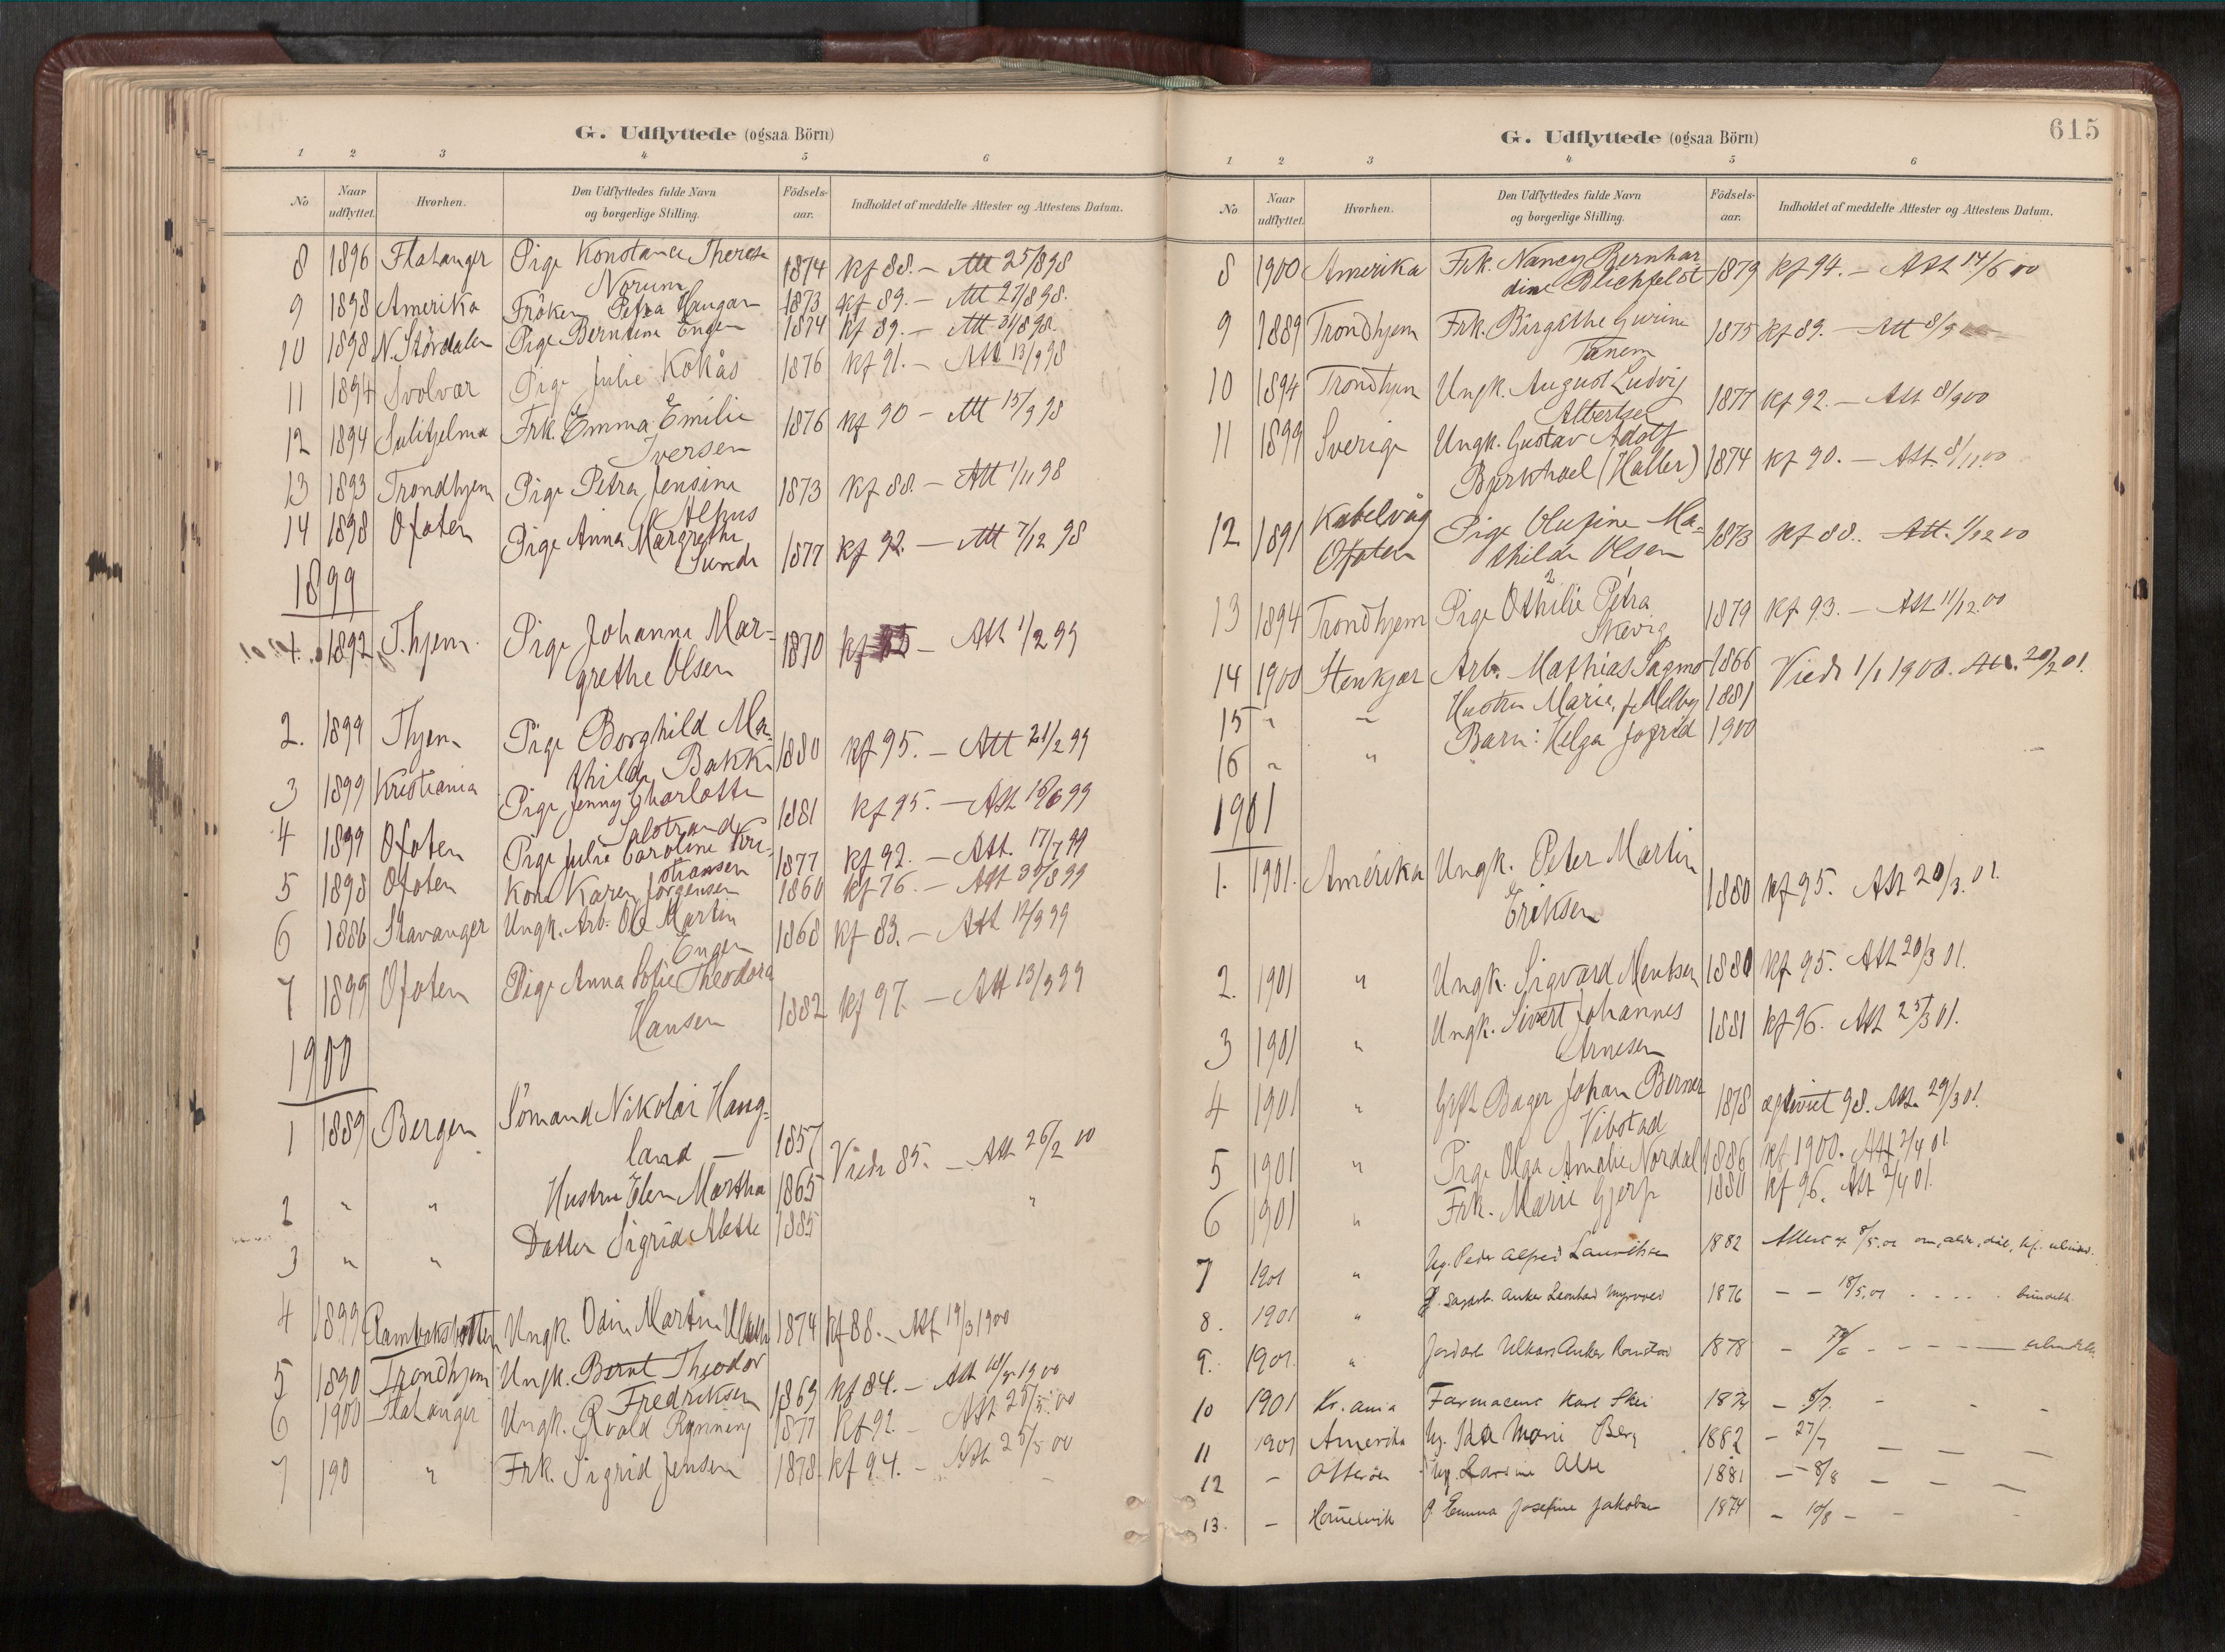 G. Udflyttede (ogsaa Börn)
1 2 3 4 5 6
No Naar udflyttet. Hvorhen. Den Udflyttedes fulde Navn og borgerlige Stilling. Födsels-aar. Indholdet af meddelte Attester og Attestens Datum.
8 1896 Flatanger Pige Konstance Therese 1874 kf 88. – Att 25/8 98
Norum
9 1898 Amerika Fröken Petra Haugan 1873 kf 89. – Att 27/8 98.
10 1898 N. Stördalen Pige Berntine Engen 1874 kf 89. – Att 31/8 98.
11 1894 Svolvær Pige Julie Kokås 1876 kf 91. – Att 13/9 98
12 1894 Sulitjelma Frk. Emma Emilie 1876 kf 90 – Att 15/9 98
Iversen
13 1893 Trondhjem Pige Petra Jensine 1873 kf 88. – Att 1/11 98
14 1898 Ofoten Pige Anna Margrethe 1877 kf 92. – Att 7/12 98
Sunde
1899
1. 1892 T.hjem. Pige Johanna Mar- 1870 kf – Att 1/2 99
grethe Olsen
2. 1899 Thjem Pige Borghild Ma- 1880 kf 95. – Att 21/2 99
thilde Bakk
3 1899 Kristiania Pige Jenny Charlotte 1881 kf 95. – Att 15/6 99
4 1899 Ofoten Pige Julie Caroline Kri- 1877 kf 92. – Att. 17/7 99
stiansen
5 1898 Ofoten Kone Karen Jørgensen 1860 kf 76. – Att 30/8 99
6 1886 Stavanger Ungk. Arb. Ole Martin 1868 kf 83. – Att 12/9 99
Engen
7 1899 Ofoten Pige Anna Sofie Theodora 1882 kf 97. – Att 13/9 99
Hansen
1900
1 1889 Bergen Sömand Nikolai Haug- 1857 Viede 85. – Att 26/2 00
land –
2 " " Hustru Elen Martha 1865 "
3 " " Datter Sigrid Alette 1885
4 1899 Ungk. Odin Martin 1874 kf 88. – Att 19/3 1900
5 1890 Trondhjem Ungk. Bernt Theodor 1869 kf 84. – Att 1900
Fredriksen
6 1900 Flatanger Ungk. Rvald Rynning 1877 Kf 92. – Att 25/5. 00
7 190 " Frk. Sigrid Jensen 1878. kf 94. – Att 25/5 00
615
G. Udflyttede (ogsaa Börn)
1 2 3 4 5 6
No Naar udflyttet. Hvorhen. Den Udflyttedes fulde Navn og borgerlige Stilling. Födsels-aar. Indholdet af meddelte Attester og Attestens Datum.
8 1900 Amerika Frk. Nancy Bernhar 1879 kf 94. – Att 14/6 00
dine Blichfeldt
9 1889 Trondhjem Frk. Birgithe Gurine 1875 kf 89. – Att 8/9
Tanem
10 1894 Trondhjem Ungk. August Ludvig 1877 kf 92. – Att 8/9 00
Albertsen
11 1899 Sverige Ungk. Gustav Adolf 1874 kf 90. – Att. 8/11 00
(Haller)
12. 1891 Kabelvåg Pige Olufine Ma- 1873 kf 88. Att. 1/12 00
Ofoten thilde Olsen
13 1894 Trondhjem Pige Othilie Petra 1879 kf 93. – Att 11/12.00
14 1900 Stenkjær Arb. Mathias Sagmo 1866 Viede 1/1 1900. Att. 20/2 01.
15 " " Hustru Marie, f. Melby 1881
16 " " Barn: Helga Jofrid 1900
1901
1. 1901. Amerika Ungk. Peter Martin 1880 kf 95. Att 20/3. 01.
Eriksen
2. 1901 " Ungk. Sigvard Mentsen 1880 kf 95. Att 20/3 01.
3 1901 " Ungk. Sivert Johannes 1881 kf 96. Att 25/3 01.
Arnesen
4 1901 " Gift Bager Johan Berner 1878 ægteviet 98. Att. 29/3 01.
Vibstad
5 1901 " Pige Olga Amalie Nordahl 1886 kf 1900. Att 2/4 01.
6 1901 " Frk. Marie Gjerp 1880 kf 96. Att 2/4 01.
7 1901 " Ug. Peder Alfred Lauritsen 1882 Attest af 8/5.01
8. 1901 " Anker Leonhard 1876 – – 18/5.01
9. 1901. " Anker 1878 –
10 1901 Kr.ania Farmaceut Karl Skei 1874 – 5/7. – – –
11 1901 Amerika Ug. Ida Marie Berg 1882 – 27/7 – – –
12 – Otterøen Alte 1881 – 8/8 – – –
13. – P. Emma Josefine Jakobsen 1874 – 10/8 – – –